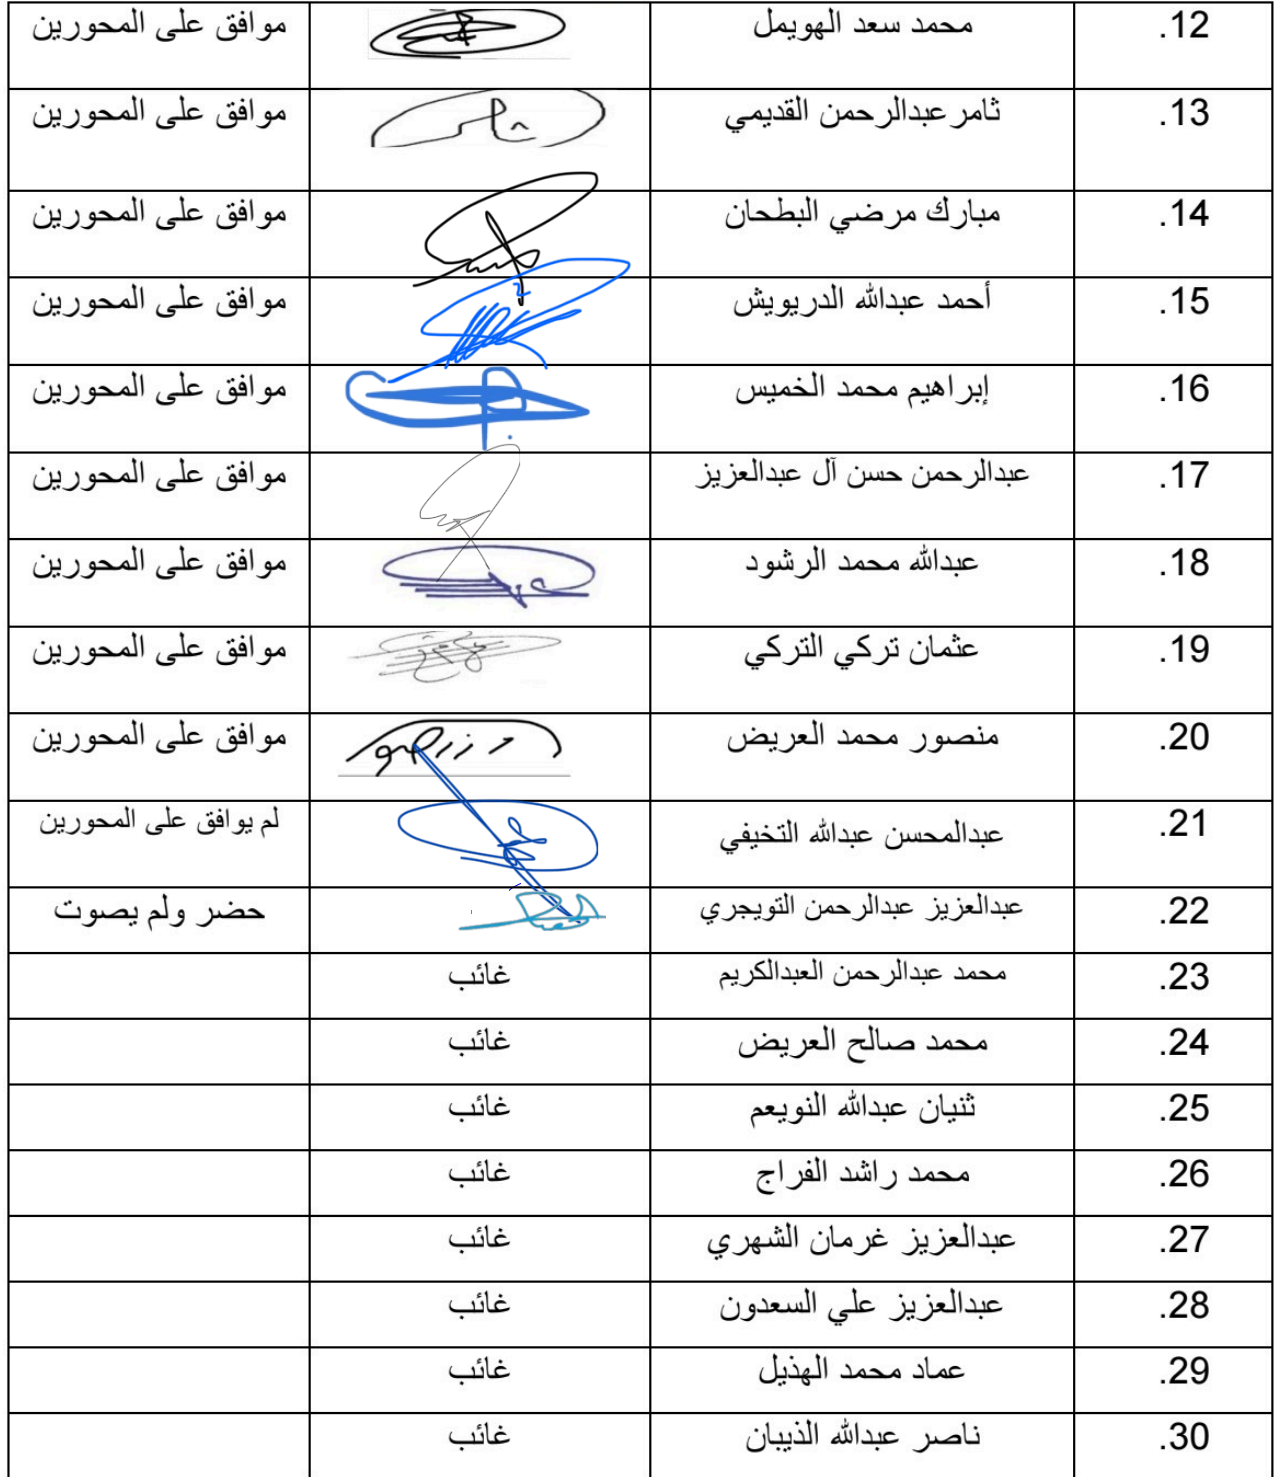 12. محمد سعد الهويمل موافق على المحورين
13. ثامر عبدالرحمن القديمي موافق على المحورين
14. مبارك مرضي البطحان موافق على المحورين
15. أحمد عبدالله الدريويش موافق على المحورين
16. إبراهيم محمد الخميس موافق على المحورين
17. عبدالرحمن حسن آل عبدالعزيز موافق على المحورين
18. عبدالله محمد الرشود موافق على المحورين
19. عثمان تركي التركي موافق على المحورين
20. منصور محمد العريض موافق على المحورين
21. عبدالمحسن عبدالله التخيفي لم يوافق على المحورين
22. عبدالعزيز عبدالرحمن التويجري حضر ولم يصوت
23. محمد عبدالرحمن العبدالكريم غائب
24. محمد صالح العريض غائب
25. ثنيان عبدالله النويعم غائب
26. محمد راشد الفراج غائب
27. عبدالعزيز غرمان الشهري غائب
28. عبدالعزيز علي السعدون غائب
29. عماد محمد الهذيل غائب
30. ناصر عبدالله الذيبان غائب